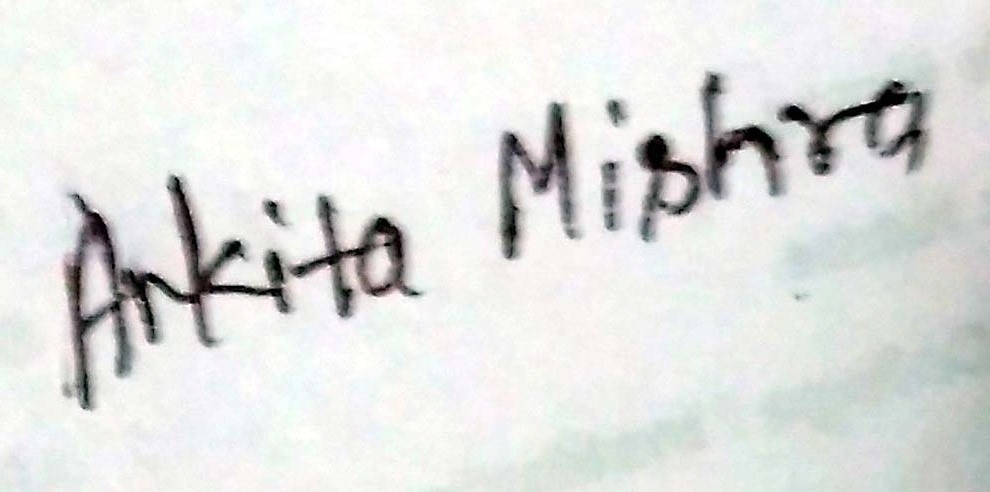 Ankita Mishra